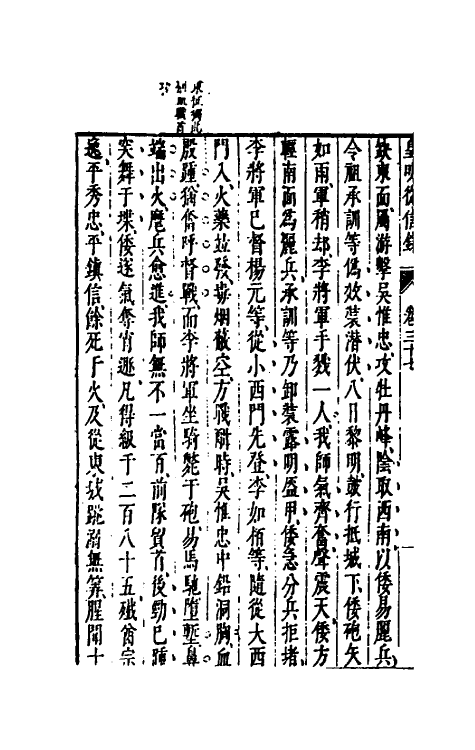 皇明從信錄 卷三十七
缺東面屬游擊吳惟忠攻牡丹峰陰取西南以倭易麗兵
令祖承訓等偽效裝潛伏八日黎明鼓行抵城下倭砲矢
如雨軍稍却李將軍手戮一人我師氣齊奮聲震天倭方
輕南面為麗兵承訓等乃卸裝露明盔甲倭急分兵拒堵
李將軍已督楊元等從小西門先登李如栢等隨從大西
門入火藥並發毒烟蔽空方戰酣時吳惟忠中鉛洞胸血
殷踵猶奮呼督戰而李將軍坐騎斃于砲易馬馳墮塹鼻
端出火麾兵愈進我師無不一當百前隊貿首後勁已踵
突舞于堞倭遂氣奪宵遁凡得級千二百八十五殲酋宗
逸平秀忠平鎮信餘死于火及從東城跳溺無筭腥聞十